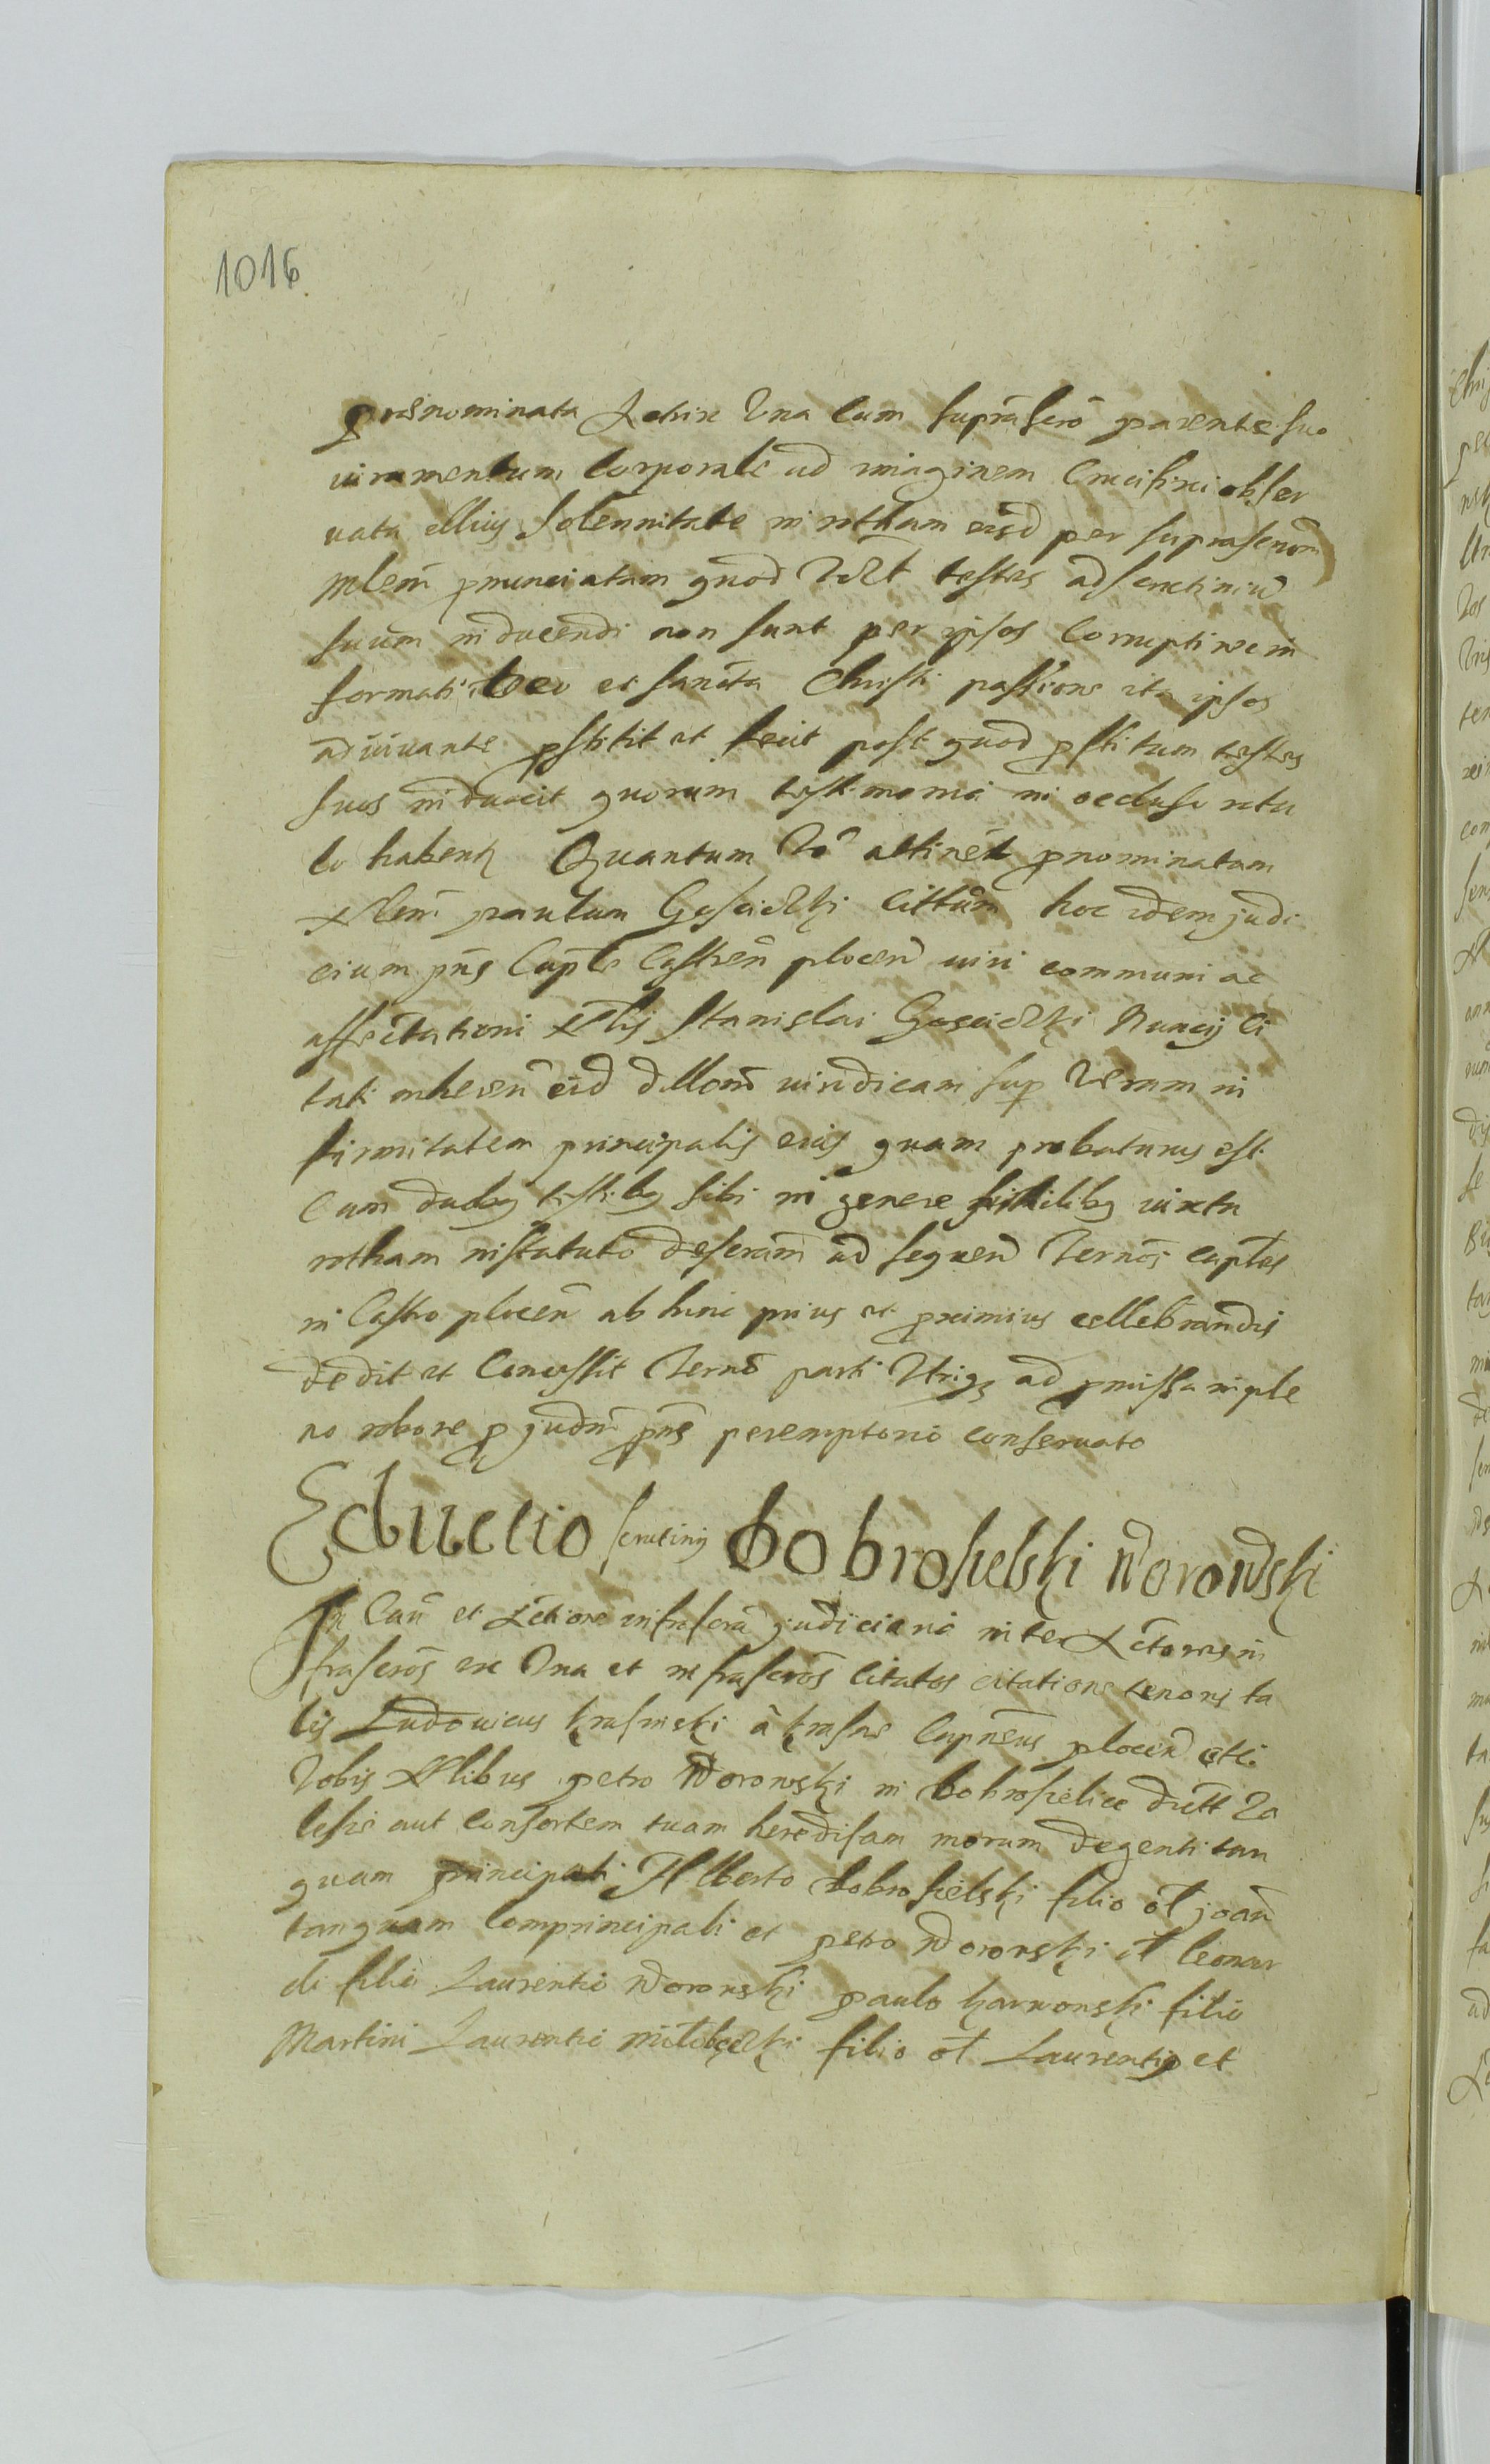 1016
prænominata Actrix Vna Cum suprascrō parente suo
iuramentum Corporale ad imaginem Crucifixi obser
uata illius Solennitate in rotham eisd per suprascrm
Mlem pnunciatam quod Vdlt testes ad scrutiniū
suum inducendi non sunt per ipsos Corrupti nec in
formati Deo et sancta Christi passione ita ipsos
adiuuante pstitit et fecit post quod pstitum testes
suos induxit quorum testimonia in occluso rotu
lo habentz Quantum Vo attinet pnominatum
Nlem paulum Gosciczki Cittum hoc idem judi
cium pns Captle Castren plocen uisi communi ac
affectationi Nlis Stanislai Gosciczki Nuncij Ci
tati inheren eid dillonē uindicam sup Veram in
firmitatem principalis eius quam probaturus est
Cum duobus testibus sibi in genere similibus iuxta
rotham in statuto descram ad sequen Termos captles
in Castro plocen ab hinc prius et proximius cellebrandis
dedit et Concessit Termō parti Vtrique ad pmissa in ple
no robore p judm pns peremptorio conseruato
Eductio scrutinij Dobrosielski Worowski
In Cau et Actione infrascra judiciaria inter Actores in
frascros ex Vna et infrascros Citatos citatione tenoris ta
lis Ludouicus Krasinski à Krasne Capneus plocen etc
Vobis Nlibus petro Worowski in Dobrosielice dictt Za
lesie aut Consortem tuam heredisam moram degenti tan
quam principali Alberto Dobrosielski filio ol joan
tanquam Comprincipali et petro Worowski ol leonar
di filio Laurentio Worowski paulo Karwowski filio
Martini Laurentio filio ol Laurentij et